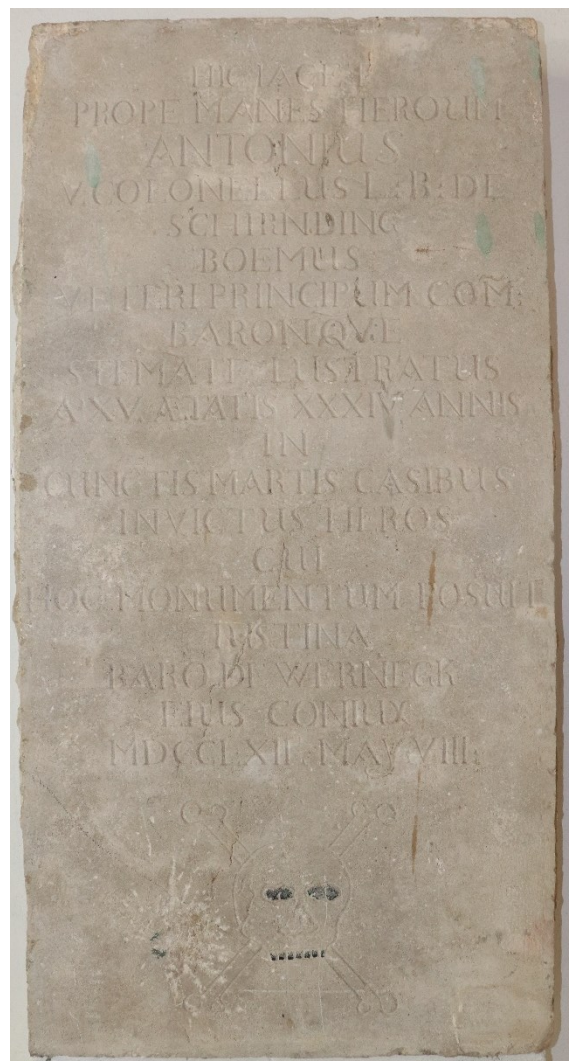 HIC IACET
PROPE MANES HEROUM
ANTONIUS
V. COLONELLUS L: B: DE
SCHIRNDING
BOEMUS
VETERI PRINCIPUM COM:
BARONQVE
STEMATE LUSTRATUS
A XV. ÆTATIS XXXIV ANNIS
IN
CUNCTIS MARTIS CASIBUS
INVICTUS HEROS
CUI
HOC MONUMENTUM POSUIT
IUSTINA
BARO. DE WERNEGK
EIUS CONIUX
MDCCLXII. MAY VIII: